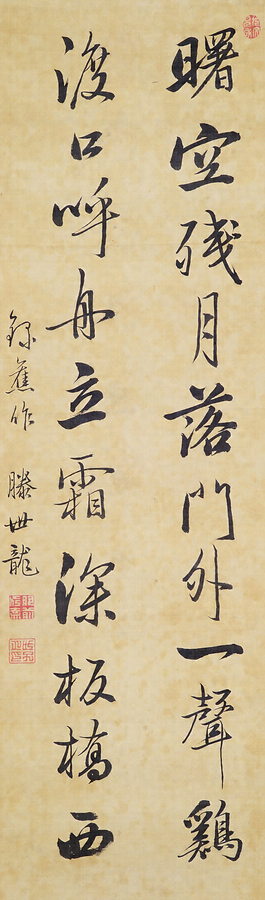 曙空残月落門外一聲鷄
渡口呼舟立霜深板橋西
録舊作 滕世龍